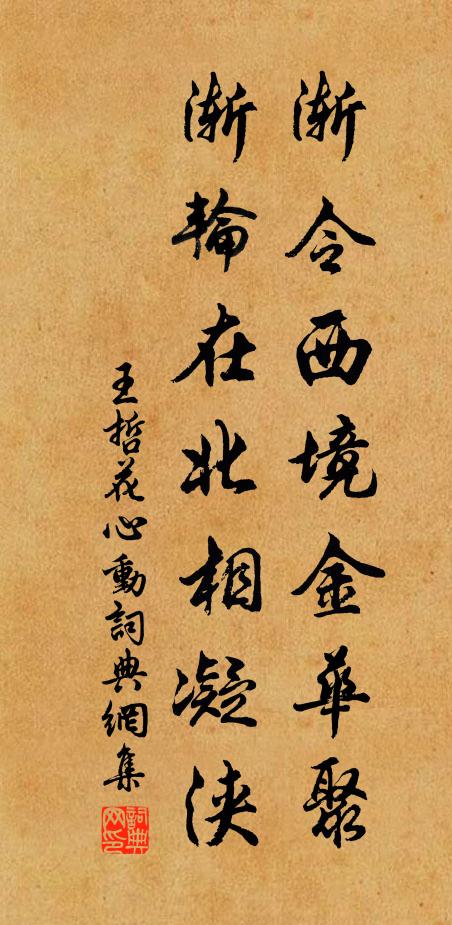 漸令西境金華聚
漸輪在北相凝浹
王哲花心動詞典網集
詞典网印